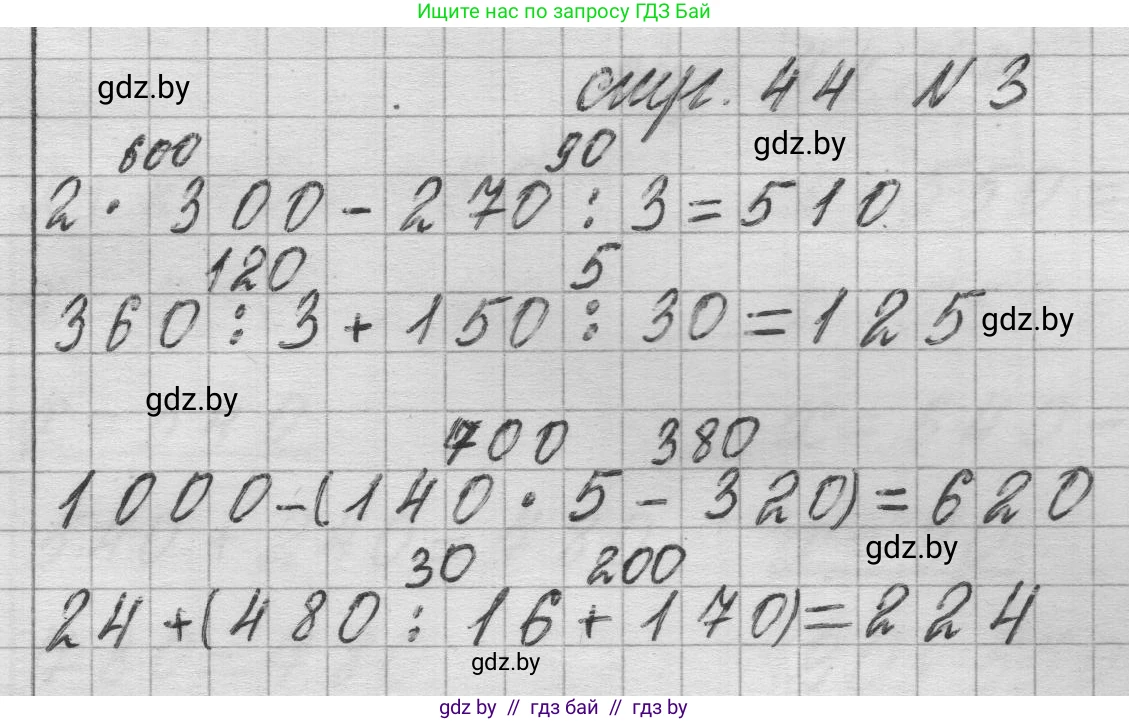 Ищите нас по запросу ГДЗ Бай
gdz.by
стр. 44 N 3
gdz.by
600 90
2 · 300 - 270 : 3 = 510
120 5
360 : 3 + 150 : 30 = 125
gdz.by
gdz.by
700 380
1000 - (140 · 5 - 320) = 620
gdz.by
30 200
24 + (480 : 16 + 170) = 224
gdz.by
gdz.by // гдз бай // gdz.by